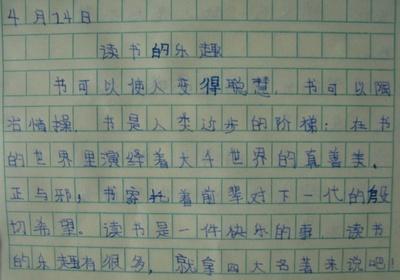 4月14日
读书的乐趣
书可以使人变得聪慧，书可以
情操，书是人类进步的阶梯：在书
的世界里演绎着大千世界的真善美，
正与邪，书寄托着前辈对下一代的殷
切希望。读书是一件快乐的事 读书
的乐趣有很多，就拿四大名著来说吧!